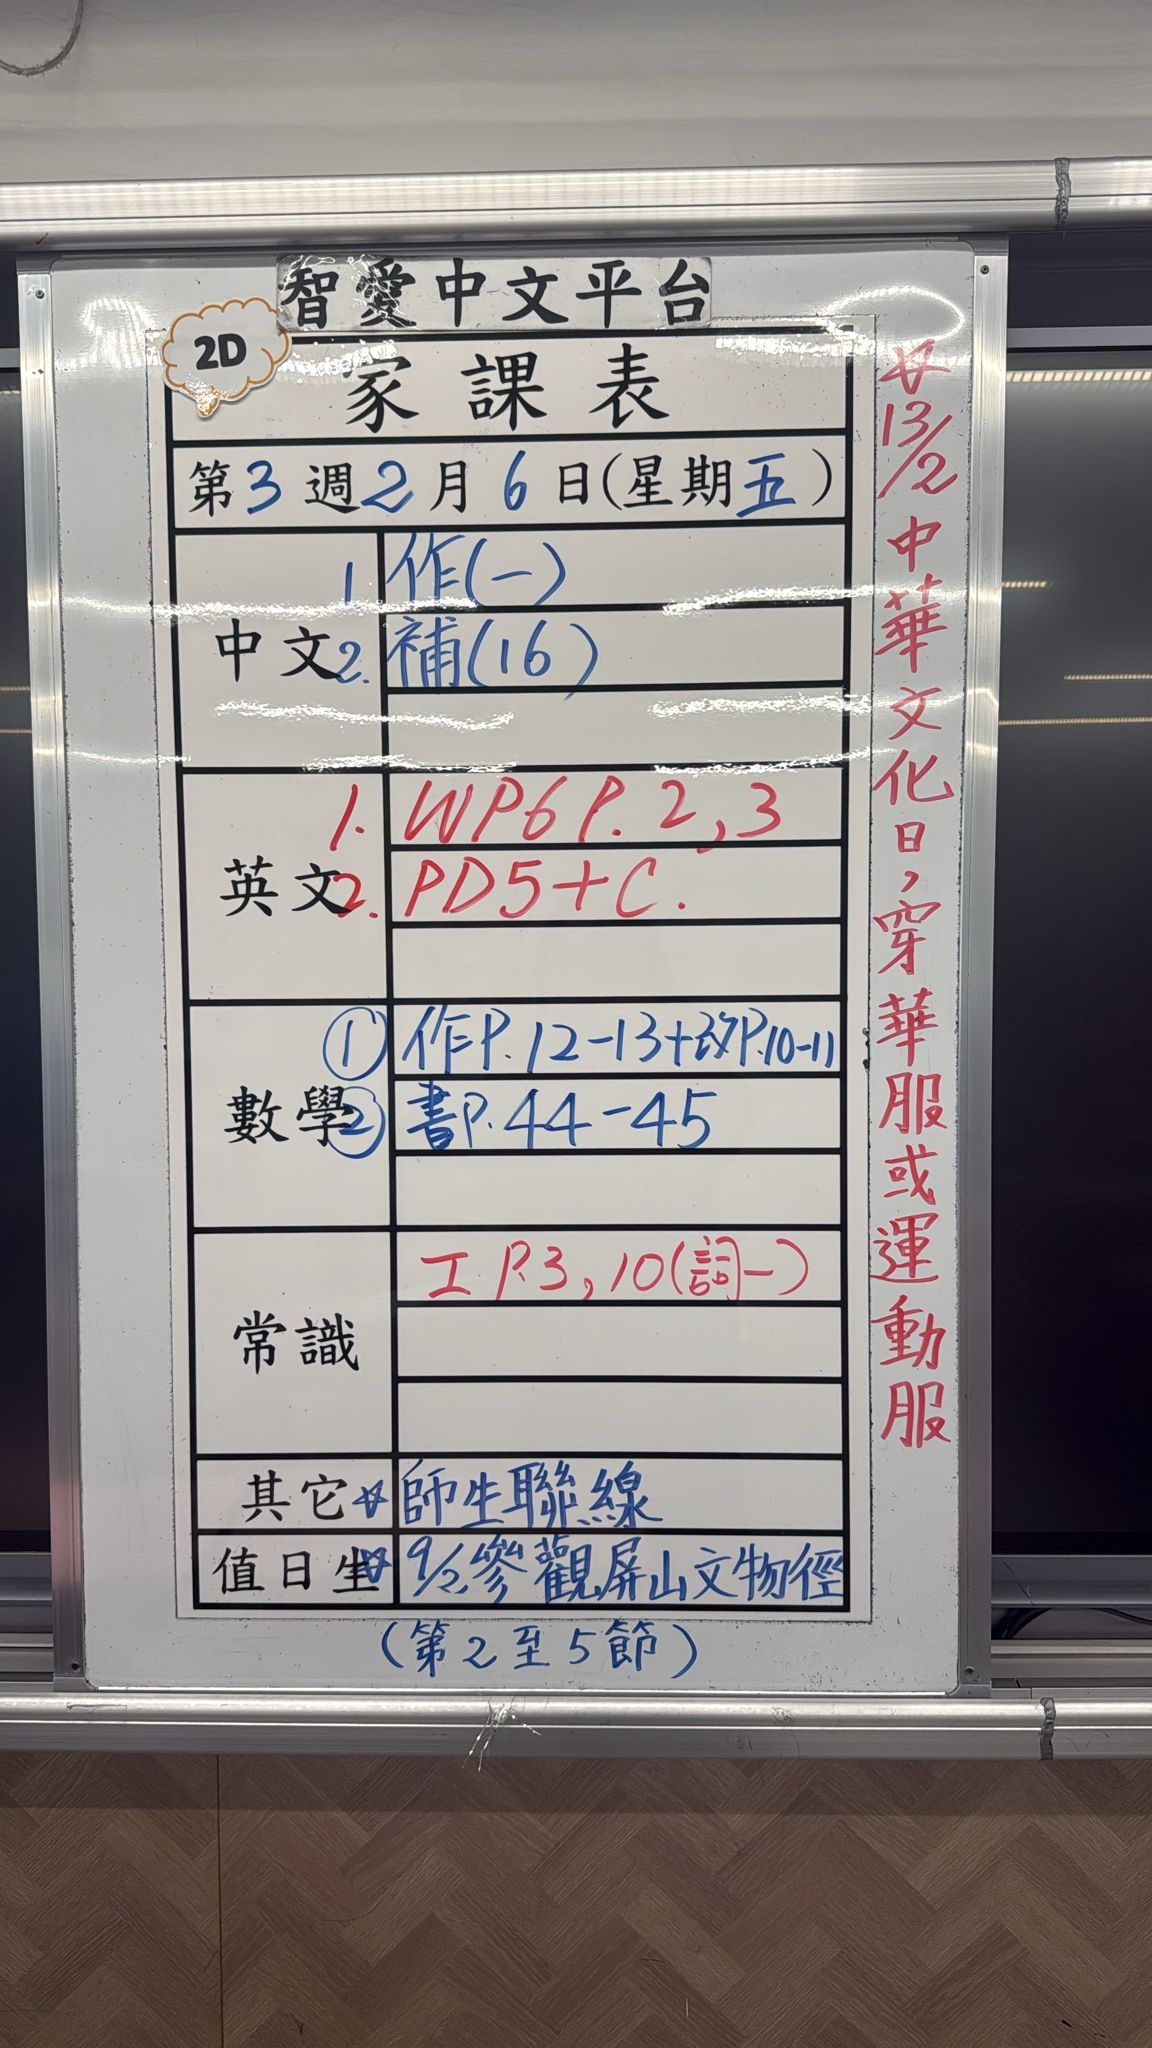 智愛中文平台
2D
家課表
第3週2月6日(星期五)
中文
1. 作(一)
2. 補(16)
英文
1. WP6 P. 2,3
2. PD5+C.
數學
① 作P.12-13+改P.10-11
② 書P.44-45
常識
工 P.3,10(詞一)
其它 ☆師生聯線
值日生 ☆9/2參觀屏山文物徑
(第2至5節)
☆13/2中華文化日,穿華服或運動服